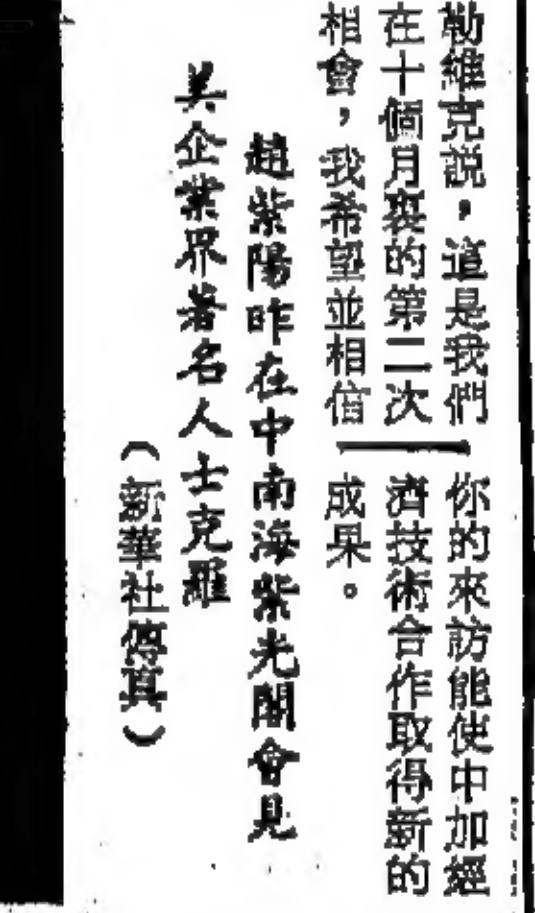 勒維克説，這是我們
在十個月裏的第二次
相會，我希望並相信
你的來訪能使中加經
濟技術合作取得新的
成果。
趙紫陽昨在中南海紫光閣會見
美企業界著名人士克羅
（新華社傳真）